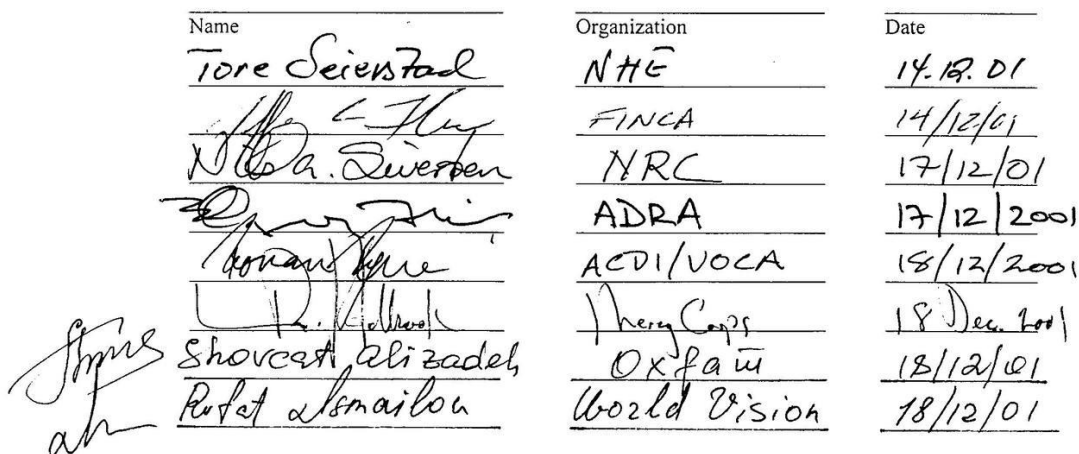 Name Organization Date
Tore Seierstad NHE 14.12.01
FINCA 14/12/01
Sivertsen NRC 17/12/01
ADRA 17/12/2001
ACDI/VOCA 18/12/2001
Mercy Corps 18 Dec. 2001
Shovcat Alizadeh Oxfam 18/12/01
Rufat Ismailov World Vision 18/12/01